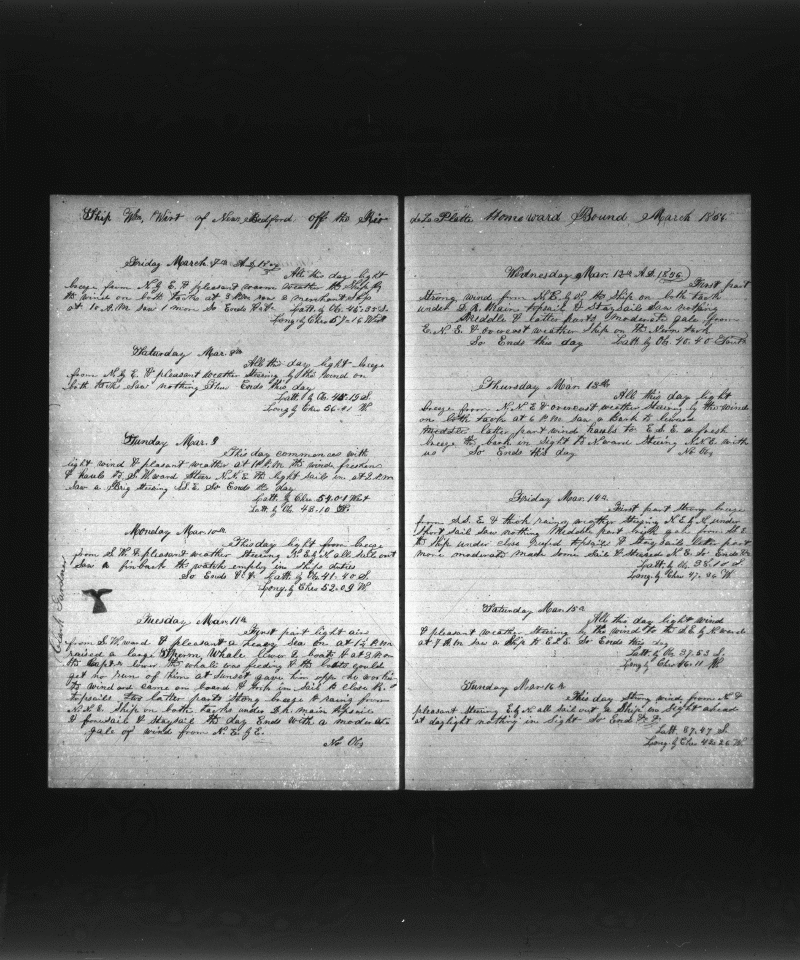 Ship Wm. Wirt of New Bedford off the Rio
Friday March 7th A.D. 1856
All this day light
breeze from N by E. & pleasant weather the Ship by
the wind on both tacks at 3 P.M. saw a merchant ship
at 10 A.M. saw 1 more So Ends &c Latt. by Ob. 42.35 S.
Long. by Chro 57-16 West
Saturday Mar. 8th
All this day light breeze
from N by E. & pleasant weather Steering by the wind on
both tack Saw nothing Thus Ends this day
Latt. by Ob. S.
Long by Chro 56-01 W.
Sunday Mar. 9
This day commences with
light wind & pleasant weather at P.M. the winds freshens
& hauls to S.W.ward Steer N.N.E. the light sails in at 2 P.M.
Saw a Brig steering S.E. So Ends the day
Long. by Chro 54.01 West
Latt. by Ob. 43-10
Monday Mar. 10th
This day light from breeze
from S.W. & pleasant weather steering N.E by N all sail out
Saw a finback the watch employ in ships duties
So Ends &c. Latt. by Ob. 41-40 S.
Long. by Chro 52.09 W.
Clark
Tuesday Mar. 11th
First part light airs
from S.W.ward & pleasant a heavy Sea on at 1½ P.M.
raised a large Sperm Whale lower 2 boats & at 3 P.M. on
the Capt. lower the whale was feeding & the boats could
get no run of him at sunset gave him up he working
to windward came on board & took in sail to close R.
topsails the latter parts strong breeze & rainy from
N.N.E. Ship on both tacks under D.R. main topsail
& foresail & staysail the day Ends with a moderate
gale of wind from N.E. by E.
No Obs
de La Platte Homeward Bound March 1856
Wednesday Mar. 12th A.D. 1856
First part
Strong wind from N.E. by N. the Ship on both tack
under D.R. Main topsail & Stay Sails Saw nothing
Middle & latter parts Moderate gale from
E.N.E. & overcast weather Ship on the N.ern tack
So Ends this day Latt. by Ob. 40.40 South
Thursday Mar. 13th
All this day light
breeze from N.N.E. & overcast weather Steering by the wind
on both tack at 6 P.M. saw a bark to leward
Middle latter part wind hauls to E.S.E. a fresh
breeze the bark in sight to N.ward Steering N.N.E. with
us So Ends this day No Obs
Friday Mar. 14th
First part Strong breeze
from S.S.E. & thick rainy weather steering N.E. by N. under
short sail saw nothing Middle part light gale from
the Ship under close reefed topsails & Stay sails latter part
more moderate made some sail & steered N.E. So Ends &c
Latt by Ob. 38.10 S.
Long. by Chro 47.36 W.
Saturday Mar. 15th
All this day light wind
& pleasant weather Steering by the wind to the S.E. by E. ward
at 7 A.M. saw a Ship to E.S.E. So Ends this day
Latt by Ob. 37.53 S.
Long by Chro 46-11 W.
Sunday Mar. 16th
This day Strong wind from N. &
pleasant Steering E. by N all sail out a Ship in Sight ahead
at daylight nothing in Sight So Ends &c
Latt. 37.47 S.
Long. by Chro 42.26 W.